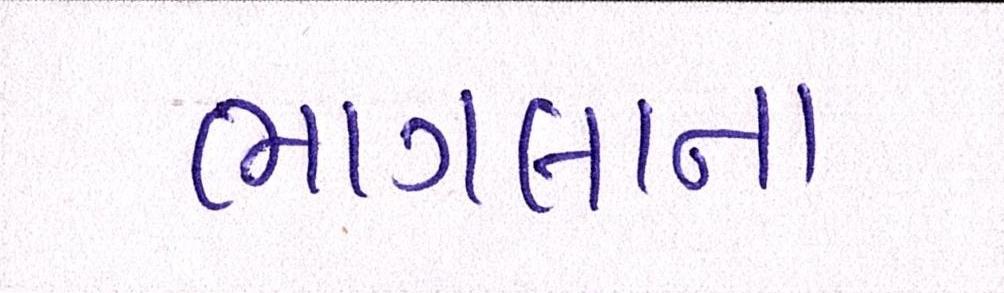 ભાગલાના